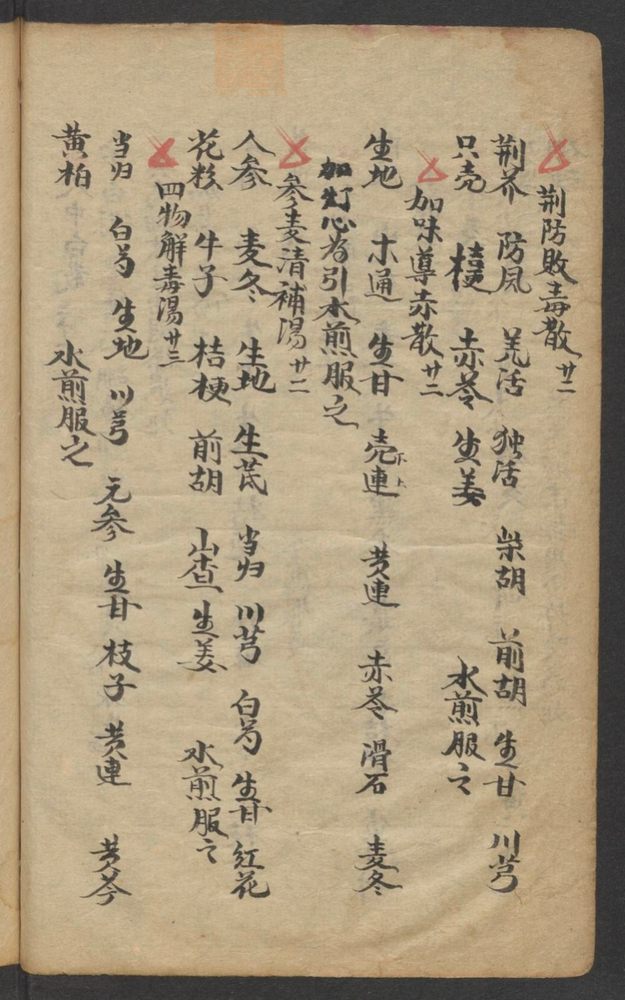 荆防敗毒散 廿二
荆芥 防风 羌活 独活 柴胡 前胡 生甘 川芎
只壳 桔梗 赤苓 生姜 水煎服之
加味導赤散 廿二
生地 木通 生甘 壳連 下上 芩連 赤苓 滑石 麦冬
加灯心為引水煎服之
参麦清補湯 廿二
人参 麦冬 生地 生芪 当归 川芎 白芍 生甘 红花
花粉 牛子 桔梗 前胡 山查 生姜 水煎服之
四物解毒湯 廿三
当归 白芍 生地 川芎 元参 生甘 枝子 黄連 黄芩
黄柏 水煎服之